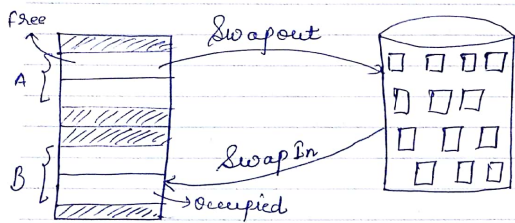 free
Swapout
A
Swap In
B
Occupied